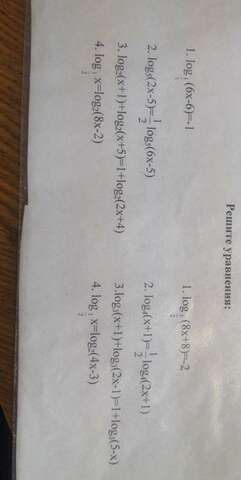 Решите уравнения:
1. log½(6x-6)=-1
2. log₅(2x-5)=½log₅(6x-5)
3. log₂(x+1)+log₂(x+5)=1+log₂(2x+4)
4. log½x=log₂(8x-2)
1. log½(8x+8)=-2
2. log₄(x+1)=½log₄(2x+1)
3.log₃(x+1)+log₃(2x-1)=1+log₃(5-x)
4. log x=log₂(4x-3)